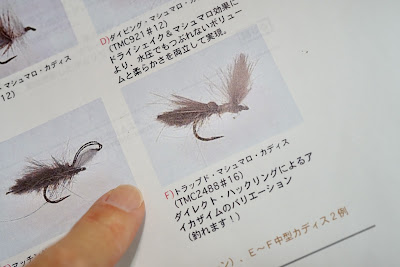 D)ダイビング・マシュマロ・カディス
(TMC921#12)
ドライシェイク&マシュマロ効果に
より、水圧でもつぶれないボリュー
ムと柔らかさを両立して実現。
カディス
12)
F)トラップド・マシュマロ・カディス
(TMC2488#16)
ダイレクト・ハックリングによるア
イカザイムのバリエーション
(釣れます!)
マッチン
ン)、E〜F中型カディス2例